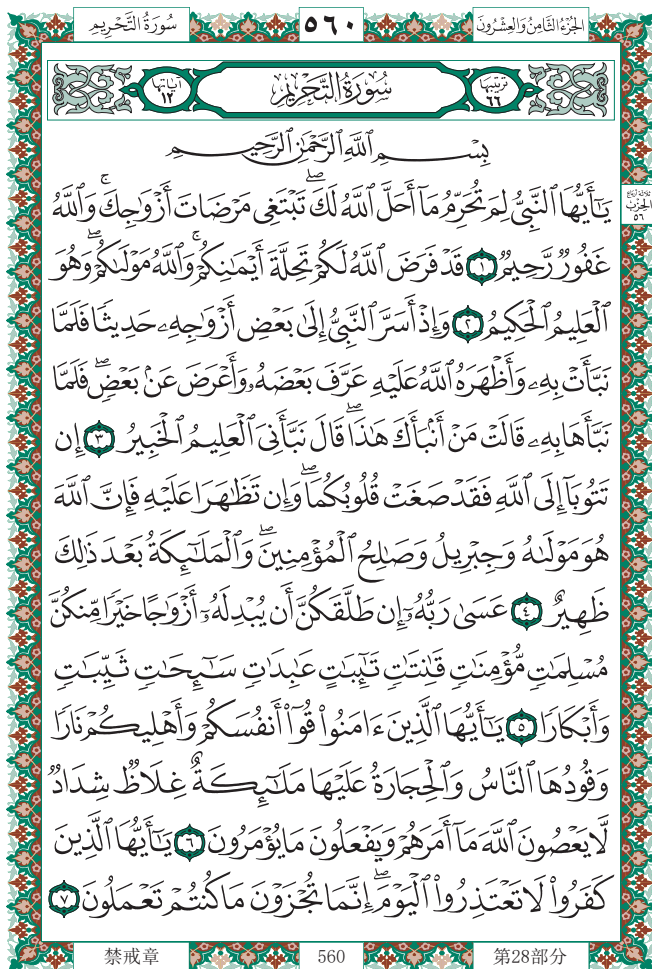 سُورَةُ التَّحْرِيمِ
٥٦٠
الجُزْءُ الثَّامِنُ وَالعِشْرُونَ
آيَاتُهَا ١٢
سُورَةُ التَّحْرِيمِ
تَرْتِيبُهَا ٦٦
بِسْمِ ٱللَّهِ ٱلرَّحْمَٰنِ ٱلرَّحِيمِ
ثلاثة أرباع
الحِزْب
٥٦
يَٰٓأَيُّهَا ٱلنَّبِيُّ لِمَ تُحَرِّمُ مَآ أَحَلَّ ٱللَّهُ لَكَۖ تَبْتَغِى مَرْضَاتَ أَزْوَٰجِكَۚ وَٱللَّهُ
غَفُورٌ رَّحِيمٌ ١ قَدْ فَرَضَ ٱللَّهُ لَكُمْ تَحِلَّةَ أَيْمَٰنِكُمْۚ وَٱللَّهُ مَوْلَىٰكُمْۖ وَهُوَ
ٱلْعَلِيمُ ٱلْحَكِيمُ ٢ وَإِذْ أَسَرَّ ٱلنَّبِيُّ إِلَىٰ بَعْضِ أَزْوَٰجِهِۦ حَدِيثًا فَلَمَّا
نَبَّأَتْ بِهِۦ وَأَظْهَرَهُ ٱللَّهُ عَلَيْهِ عَرَّفَ بَعْضَهُۥ وَأَعْرَضَ عَنۢ بَعْضٍۖ فَلَمَّا
نَبَّأَهَا بِهِۦ قَالَتْ مَنْ أَنۢبَأَكَ هَٰذَاۖ قَالَ نَبَّأَنِىَ ٱلْعَلِيمُ ٱلْخَبِيرُ ٣ إِن
تَتُوبَآ إِلَى ٱللَّهِ فَقَدْ صَغَتْ قُلُوبُكُمَاۖ وَإِن تَظَٰهَرَا عَلَيْهِ فَإِنَّ ٱللَّهَ
هُوَ مَوْلَىٰهُ وَجِبْرِيلُ وَصَٰلِحُ ٱلْمُؤْمِنِينَۖ وَٱلْمَلَٰٓئِكَةُ بَعْدَ ذَٰلِكَ
ظَهِيرٌ ٤ عَسَىٰ رَبُّهُۥٓ إِن طَلَّقَكُنَّ أَن يُبْدِلَهُۥٓ أَزْوَٰجًا خَيْرًا مِّنكُنَّ
مُسْلِمَٰتٍ مُّؤْمِنَٰتٍ قَٰنِتَٰتٍ تَٰٓئِبَٰتٍ عَٰبِدَٰتٍ سَٰٓئِحَٰتٍ ثَيِّبَٰتٍ
وَأَبْكَارًا ٥ يَٰٓأَيُّهَا ٱلَّذِينَ ءَامَنُوا۟ قُوٓا۟ أَنفُسَكُمْ وَأَهْلِيكُمْ نَارًا
وَقُودُهَا ٱلنَّاسُ وَٱلْحِجَارَةُ عَلَيْهَا مَلَٰٓئِكَةٌ غِلَاظٌ شِدَادٌ
لَّا يَعْصُونَ ٱللَّهَ مَآ أَمَرَهُمْ وَيَفْعَلُونَ مَا يُؤْمَرُونَ ٦ يَٰٓأَيُّهَا ٱلَّذِينَ
كَفَرُوا۟ لَا تَعْتَذِرُوا۟ ٱلْيَوْمَۖ إِنَّمَا تُجْزَوْنَ مَا كُنتُمْ تَعْمَلُونَ ٧
禁戒章
560
第28部分